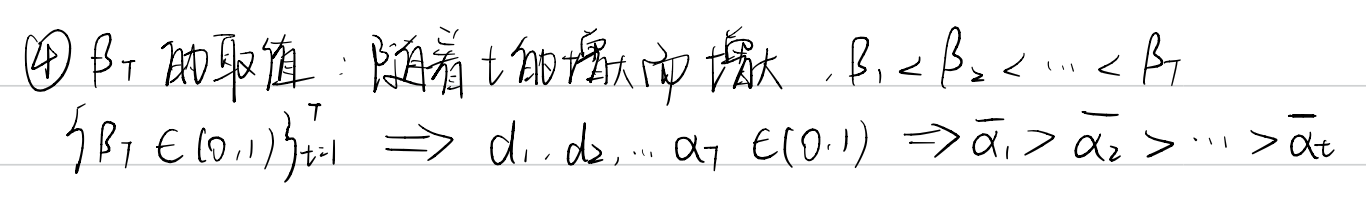 ④ β_T 的取值：随着t的增大而增大，β₁ < β₂ < ⋯ < β_T
{β_T ∈(0,1)}_{t=1}^T ⟹ α₁, α₂, ⋯ α_T ∈(0,1) ⟹ ᾱ₁ > ᾱ₂ > ⋯ > ᾱ_t